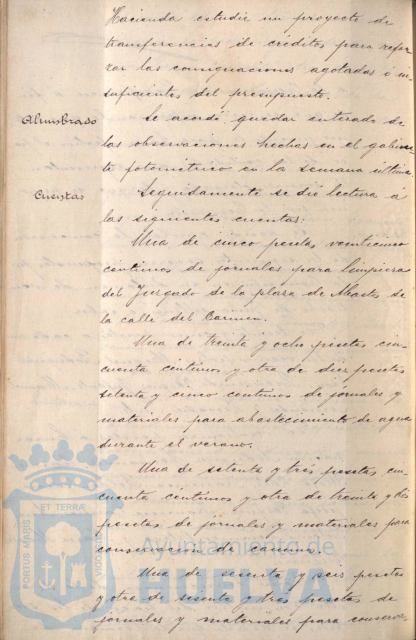 Hacienda estudie un proyecto de
transferencias de créditos para refor
zar las consignaciones agotadas ó in-
suficientes del presupuesto.
Alumbrado
Se acordó quedar enterado de
las observaciones hechas en el gabine
te fotométrico en la semana última.
Cuentas
Seguidamente se dió lectura á
las siguientes cuentas:
Una de cinco pesetas veinticinco
céntimos de jornales para limpieza
del Juzgado de la plaza de Abastos de
la calle del Carmen.
Una de treinta y ocho pesetas cin-
cuenta céntimos y otra de diez pesetas
setenta y cinco céntimos de jornales y
materiales para abastecimiento de agua
durante el verano.
Una de setenta y tres pesetas cin
cuenta céntimos y otra de treinta y tres
pesetas de jornales y materiales para
conservación de caminos.
Una de sesenta y seis pesetas
y otra de sesenta y tres pesetas de
jornales y materiales para conserva
PORTUS MARIS ET TERRÆ CUSTODIA
Ayuntamiento de
HUELVA